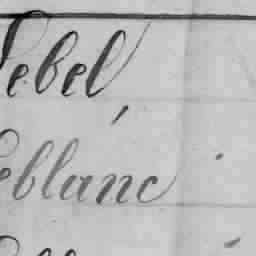 Lebel,
Leblanc